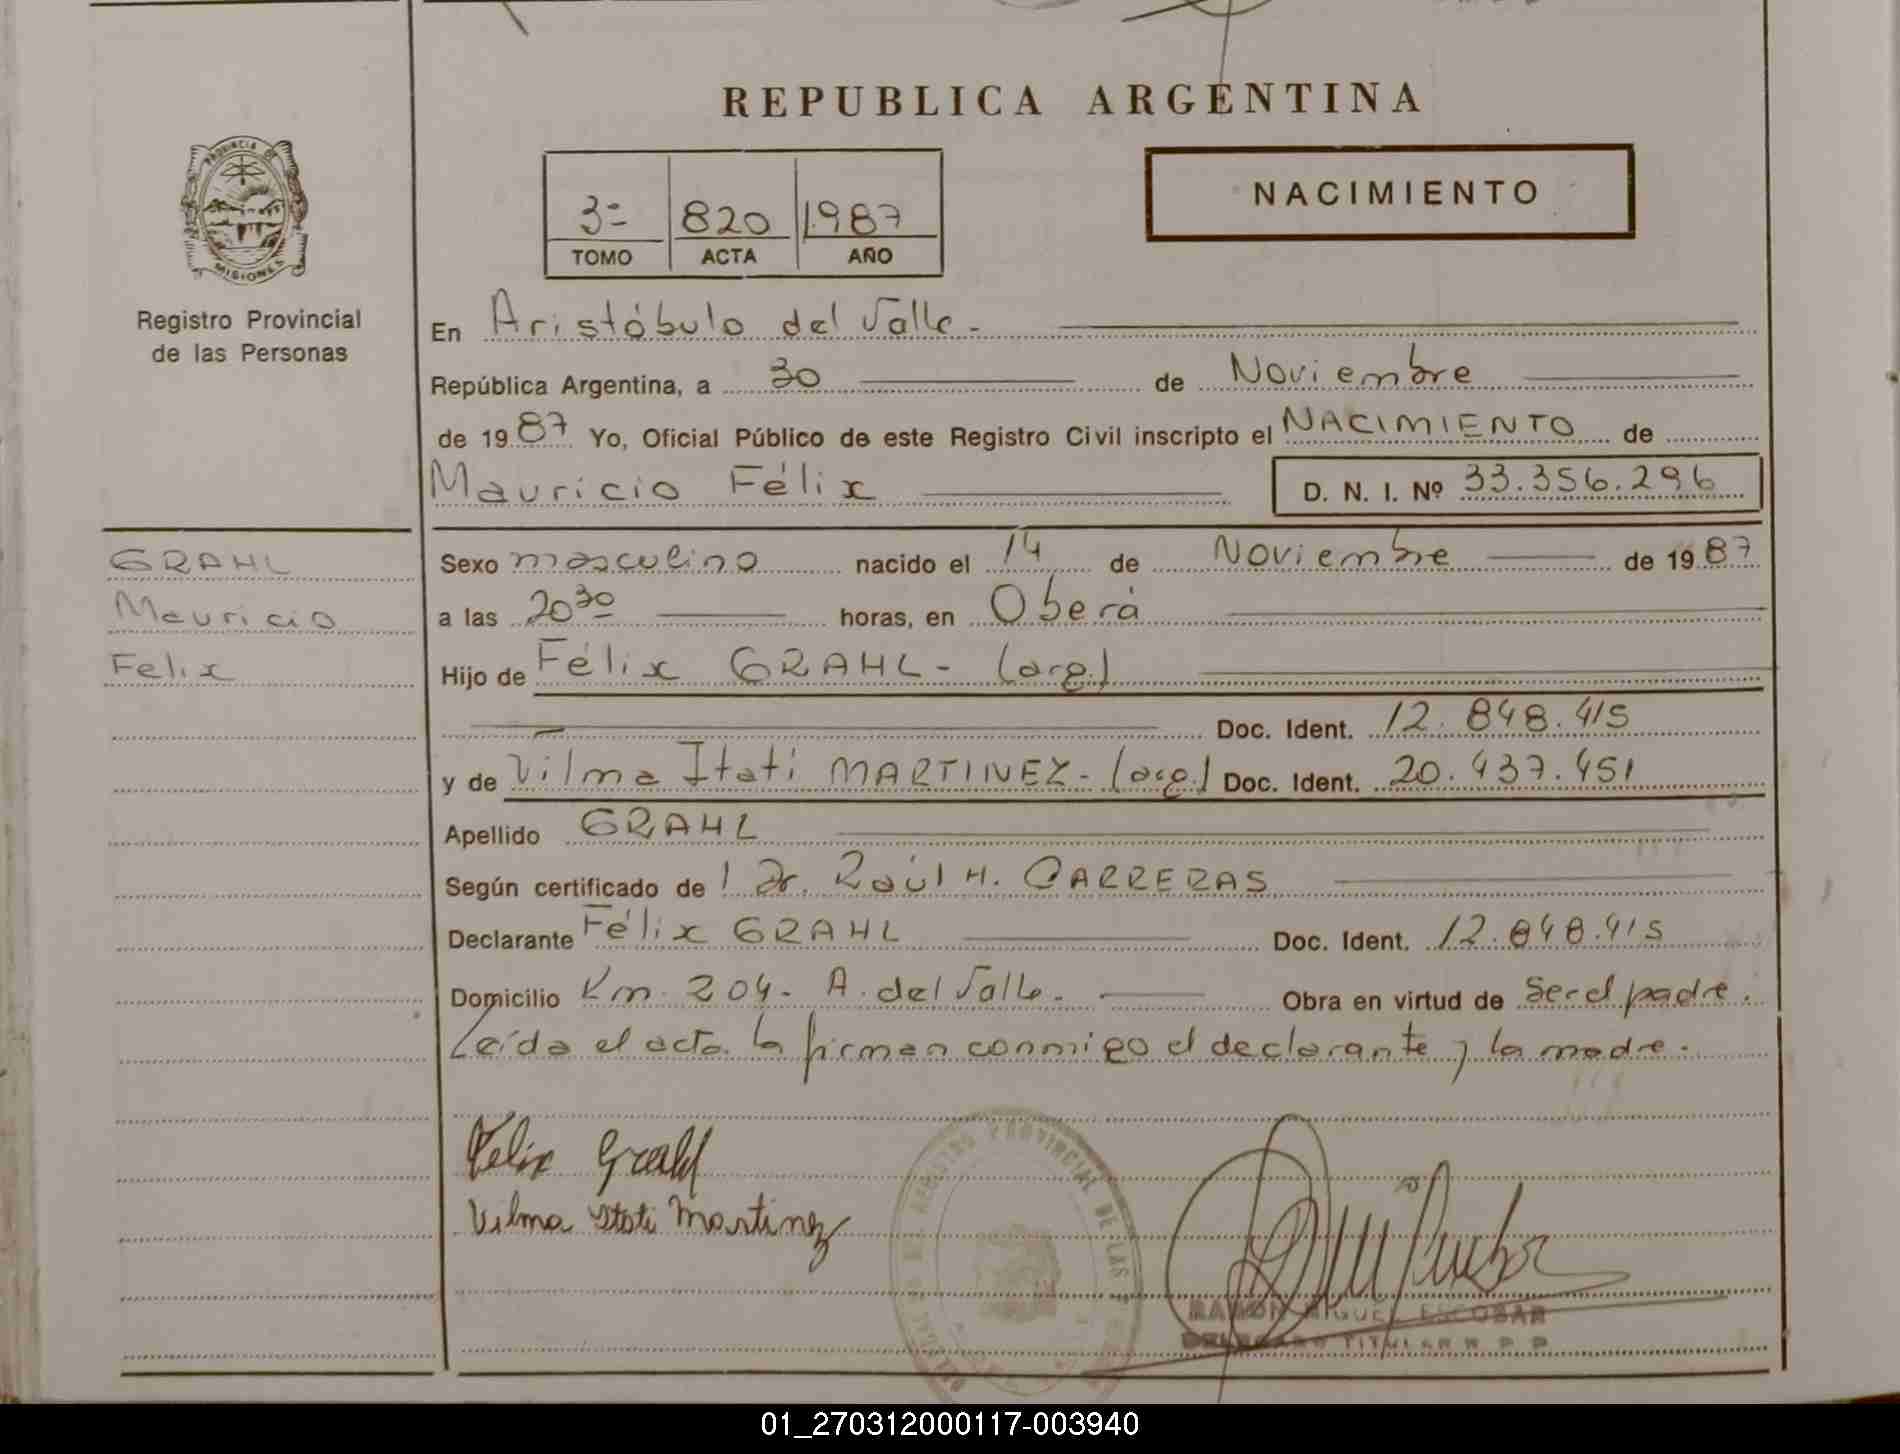 REPUBLICA ARGENTINA
NACIMIENTO
3º 820 1987
TOMO ACTA AÑO
PROVINCIA DE
MISIONES
Registro Provincial
de las Personas
En Aristóbulo del Valle.-
República Argentina, a 30 de Noviembre
de 1987 Yo, Oficial Público de este Registro Civil inscripto el NACIMIENTO de
Mauricio Félix D. N. I. Nº 33.356.296
GRAHL
Mauricio
Felix
Sexo masculino nacido el 14 de Noviembre de 1987
a las 20 30 horas, en Oberá
Hijo de Félix GRAHL - (arg.)
Doc. Ident. 12.848.415
y de Vilma Itatí MARTINEZ - (arg.) Doc. Ident. 20.437.451
Apellido GRAHL
Según certificado de l Dr. Raúl H. CARRERAS
Declarante Félix GRAHL Doc. Ident. 12.848.415
Domicilio Km. 204 - A. del Valle. Obra en virtud de Ser el padre.
Leída el acta la firman conmigo el declarante y la madre.
Felix Grahl
Vilma Itati Martinez
REGISTRO PROVINCIAL DE LAS
RAMON MIGUEL ESCOBAR
DELEGADO TITULAR R. P. P.
01_270312000117-003940